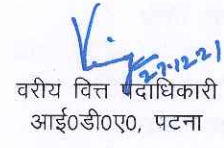 27.12.21
वरीय वित्त पदाधिकारी
आई0डी0ए0, पटना